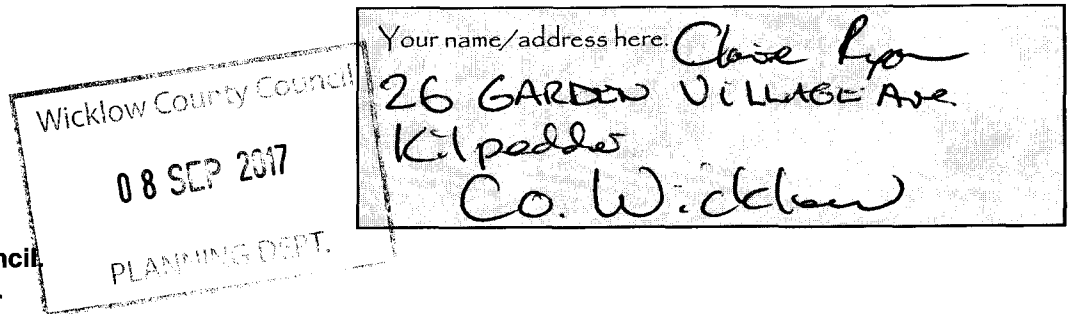 Your name/address here. Claire Ryan
26 GARDEN VILLAGE Ave
Kilpedder
Co. Wicklow
Wicklow County Council
08 SEP 2017
PLANNING DEPT.
ncil.